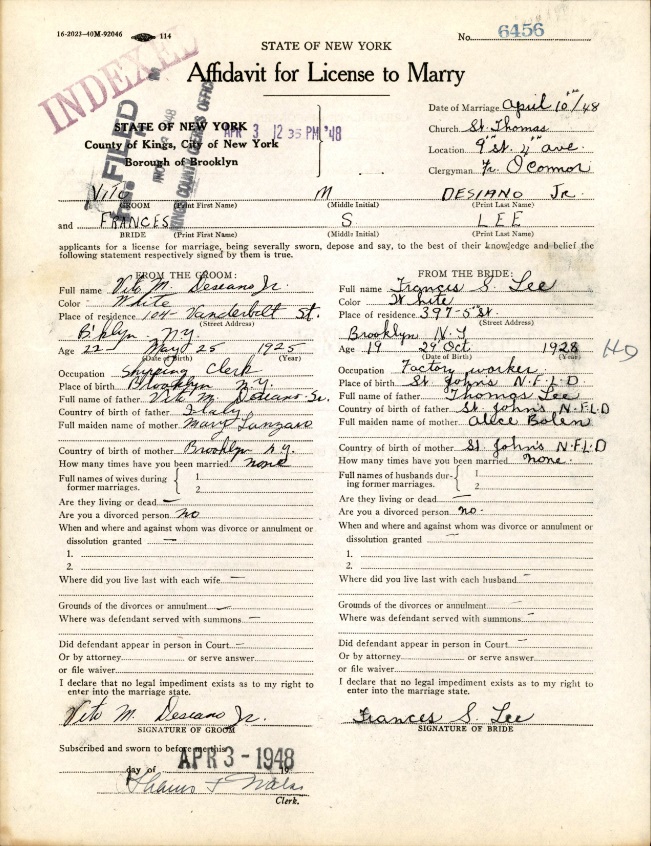 16-2023-40M-92046 114
No. 6456
STATE OF NEW YORK
Affidavit for License to Marry
INDEXED
FILED
KINGS COUNTY CLERK'S OFFICE
STATE OF NEW YORK
County of Kings, City of New York
Borough of Brooklyn
APR 3 12 35 PM '48
Date of Marriage April 10th/48
Church St. Thomas
Location 9" St. 4" ave.
Clergyman Fr. O'Connor
Vito M DESIANO Jr.
GROOM (Print First Name) (Middle Initial) (Print Last Name)
and FRANCES S LEE
BRIDE (Print First Name) (Middle Initial) (Print Last Name)
applicants for a license for marriage, being severally sworn, depose and say, to the best of their knowledge and belief the
following statement respectively signed by them is true.
FROM THE GROOM:
Full name Vito M. Desiano Jr.
Color White
Place of residence 104- Vanderbilt St.
(Street Address)
B'klyn N.Y.
Age 22 May 25 1925
(Date of Birth) (Year)
Occupation Shipping Clerk
Place of birth Brooklyn N.Y.
Full name of father Vito M. Desiano Sr.
Country of birth of father Italy
Full maiden name of mother Mary Lanzaro
Country of birth of mother Brooklyn N.Y.
How many times have you been married none
Full names of wives during
former marriages.
1.
2.
Are they living or dead —
Are you a divorced person no
When and where and against whom was divorce or annulment or
dissolution granted —
1.
2.
Where did you live last with each wife —
Grounds of the divorces or annulment —
Where was defendant served with summons —
Did defendant appear in person in Court —
Or by attorney or serve answer
or file waiver
I declare that no legal impediment exists as to my right to
enter into the marriage state.
Vito M. Desiano Jr.
SIGNATURE OF GROOM
Subscribed and sworn to before me this
APR 3 - 1948
day of 19
Clerk.
FROM THE BRIDE:
Full name Frances S. Lee
Color White
Place of residence 397-5" St.
(Street Address)
Brooklyn N.Y
Age 19 29 Oct 1928
(Date of Birth) (Year)
Occupation Factory worker
Place of birth St Johns N.F.L.D
Full name of father Thomas Lee
Country of birth of father St. John's N.F.L.D
Full maiden name of mother Alice Bolen
Country of birth of mother St John's N.F.L.D
How many times have you been married none.
Full names of husbands dur-
ing former marriages.
1.
2.
Are they living or dead —
Are you a divorced person no.
When and where and against whom was divorce or annulment or
dissolution granted —
1.
2.
Where did you live last with each husband —
Grounds of the divorces or annulment —
Where was defendant served with summons —
Did defendant appear in person in Court —
Or by attorney or serve answer
or file waiver
I declare that no legal impediment exists as to my right to
enter into the marriage state.
Frances S. Lee
SIGNATURE OF BRIDE